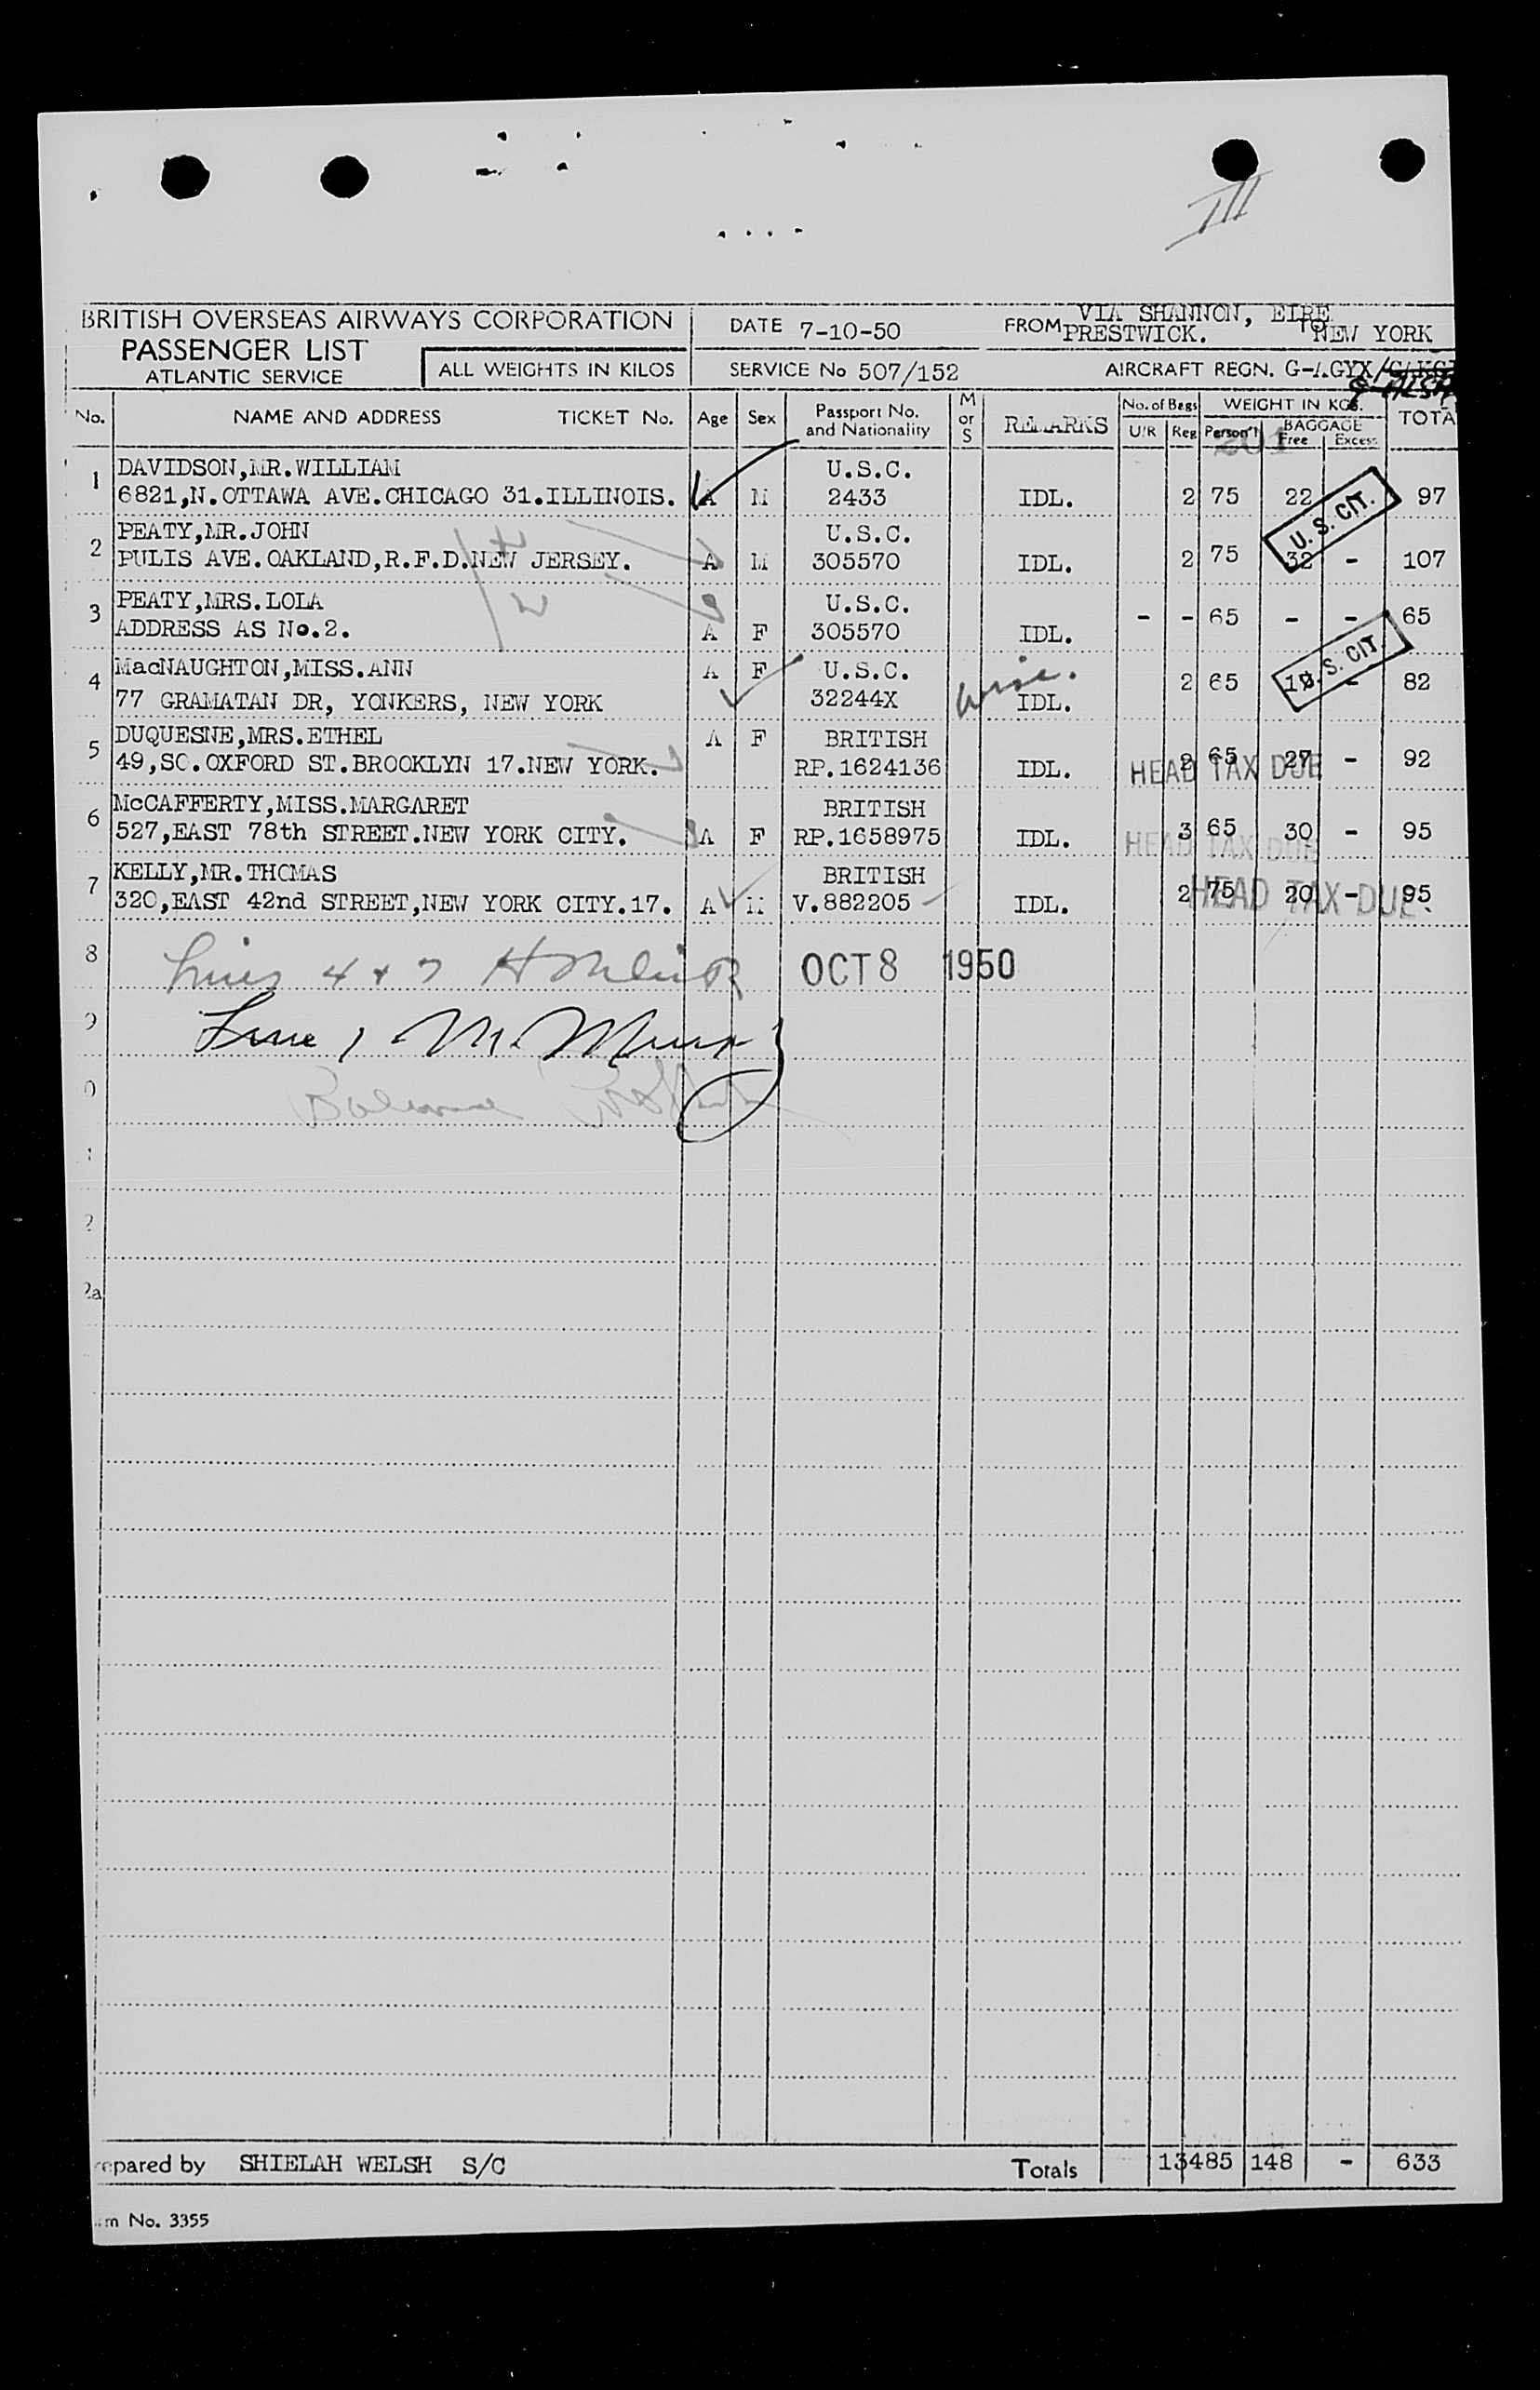 III
BRITISH OVERSEAS AIRWAYS CORPORATION
PASSENGER LIST
ATLANTIC SERVICE
ALL WEIGHTS IN KILOS
DATE 7-10-50
VIA SHANNON, EIRE
FROM PRESTWICK. TO NEW YORK
SERVICE No 507/152
AIRCRAFT REGN. G-AGYX/
No. NAME AND ADDRESS TICKET No. Age Sex Passport No. and Nationality M or S REMARKS No. of Bags U/R Reg WEIGHT IN KGS. Person'l BAGGAGE Free Excess TOTA
201
1 DAVIDSON,MR.WILLIAM U.S.C.
6821,N.OTTAWA AVE.CHICAGO 31.ILLINOIS. A M 2433 IDL. 2 75 22 97
U. S. CIT.
2 PEATY,MR.JOHN U.S.C.
PULIS AVE.OAKLAND,R.F.D.NEW JERSEY. A M 305570 IDL. 2 75 32 - 107
3 PEATY,MRS.LOLA U.S.C.
ADDRESS AS No.2. A F 305570 IDL. - - 65 - - 65
U. S. CIT.
4 MacNAUGHTON,MISS.ANN A F U.S.C.
77 GRAMATAN DR, YONKERS, NEW YORK 32244X IDL. 2 65 - 82
5 DUQUESNE,MRS.ETHEL A F BRITISH
49,SO.OXFORD ST.BROOKLYN 17.NEW YORK. RP.1624136 IDL. 2 65 27 - 92
HEAD TAX DUE
6 McCAFFERTY,MISS.MARGARET BRITISH
527,EAST 78th STREET.NEW YORK CITY. A F RP.1658975 IDL. 3 65 30 - 95
HEAD TAX DUE
7 KELLY,MR.THOMAS BRITISH
320,EAST 42nd STREET,NEW YORK CITY.17. A M V.882205 IDL. 2 75 20 - 95
HEAD TAX DUE.
8 Lines 4 & 7
OCT 8 1950
9 Line 1
0 Balance
1
2
2a
epared by SHIELAH WELSH S/C Totals 13 485 148 - 633
m No. 3355